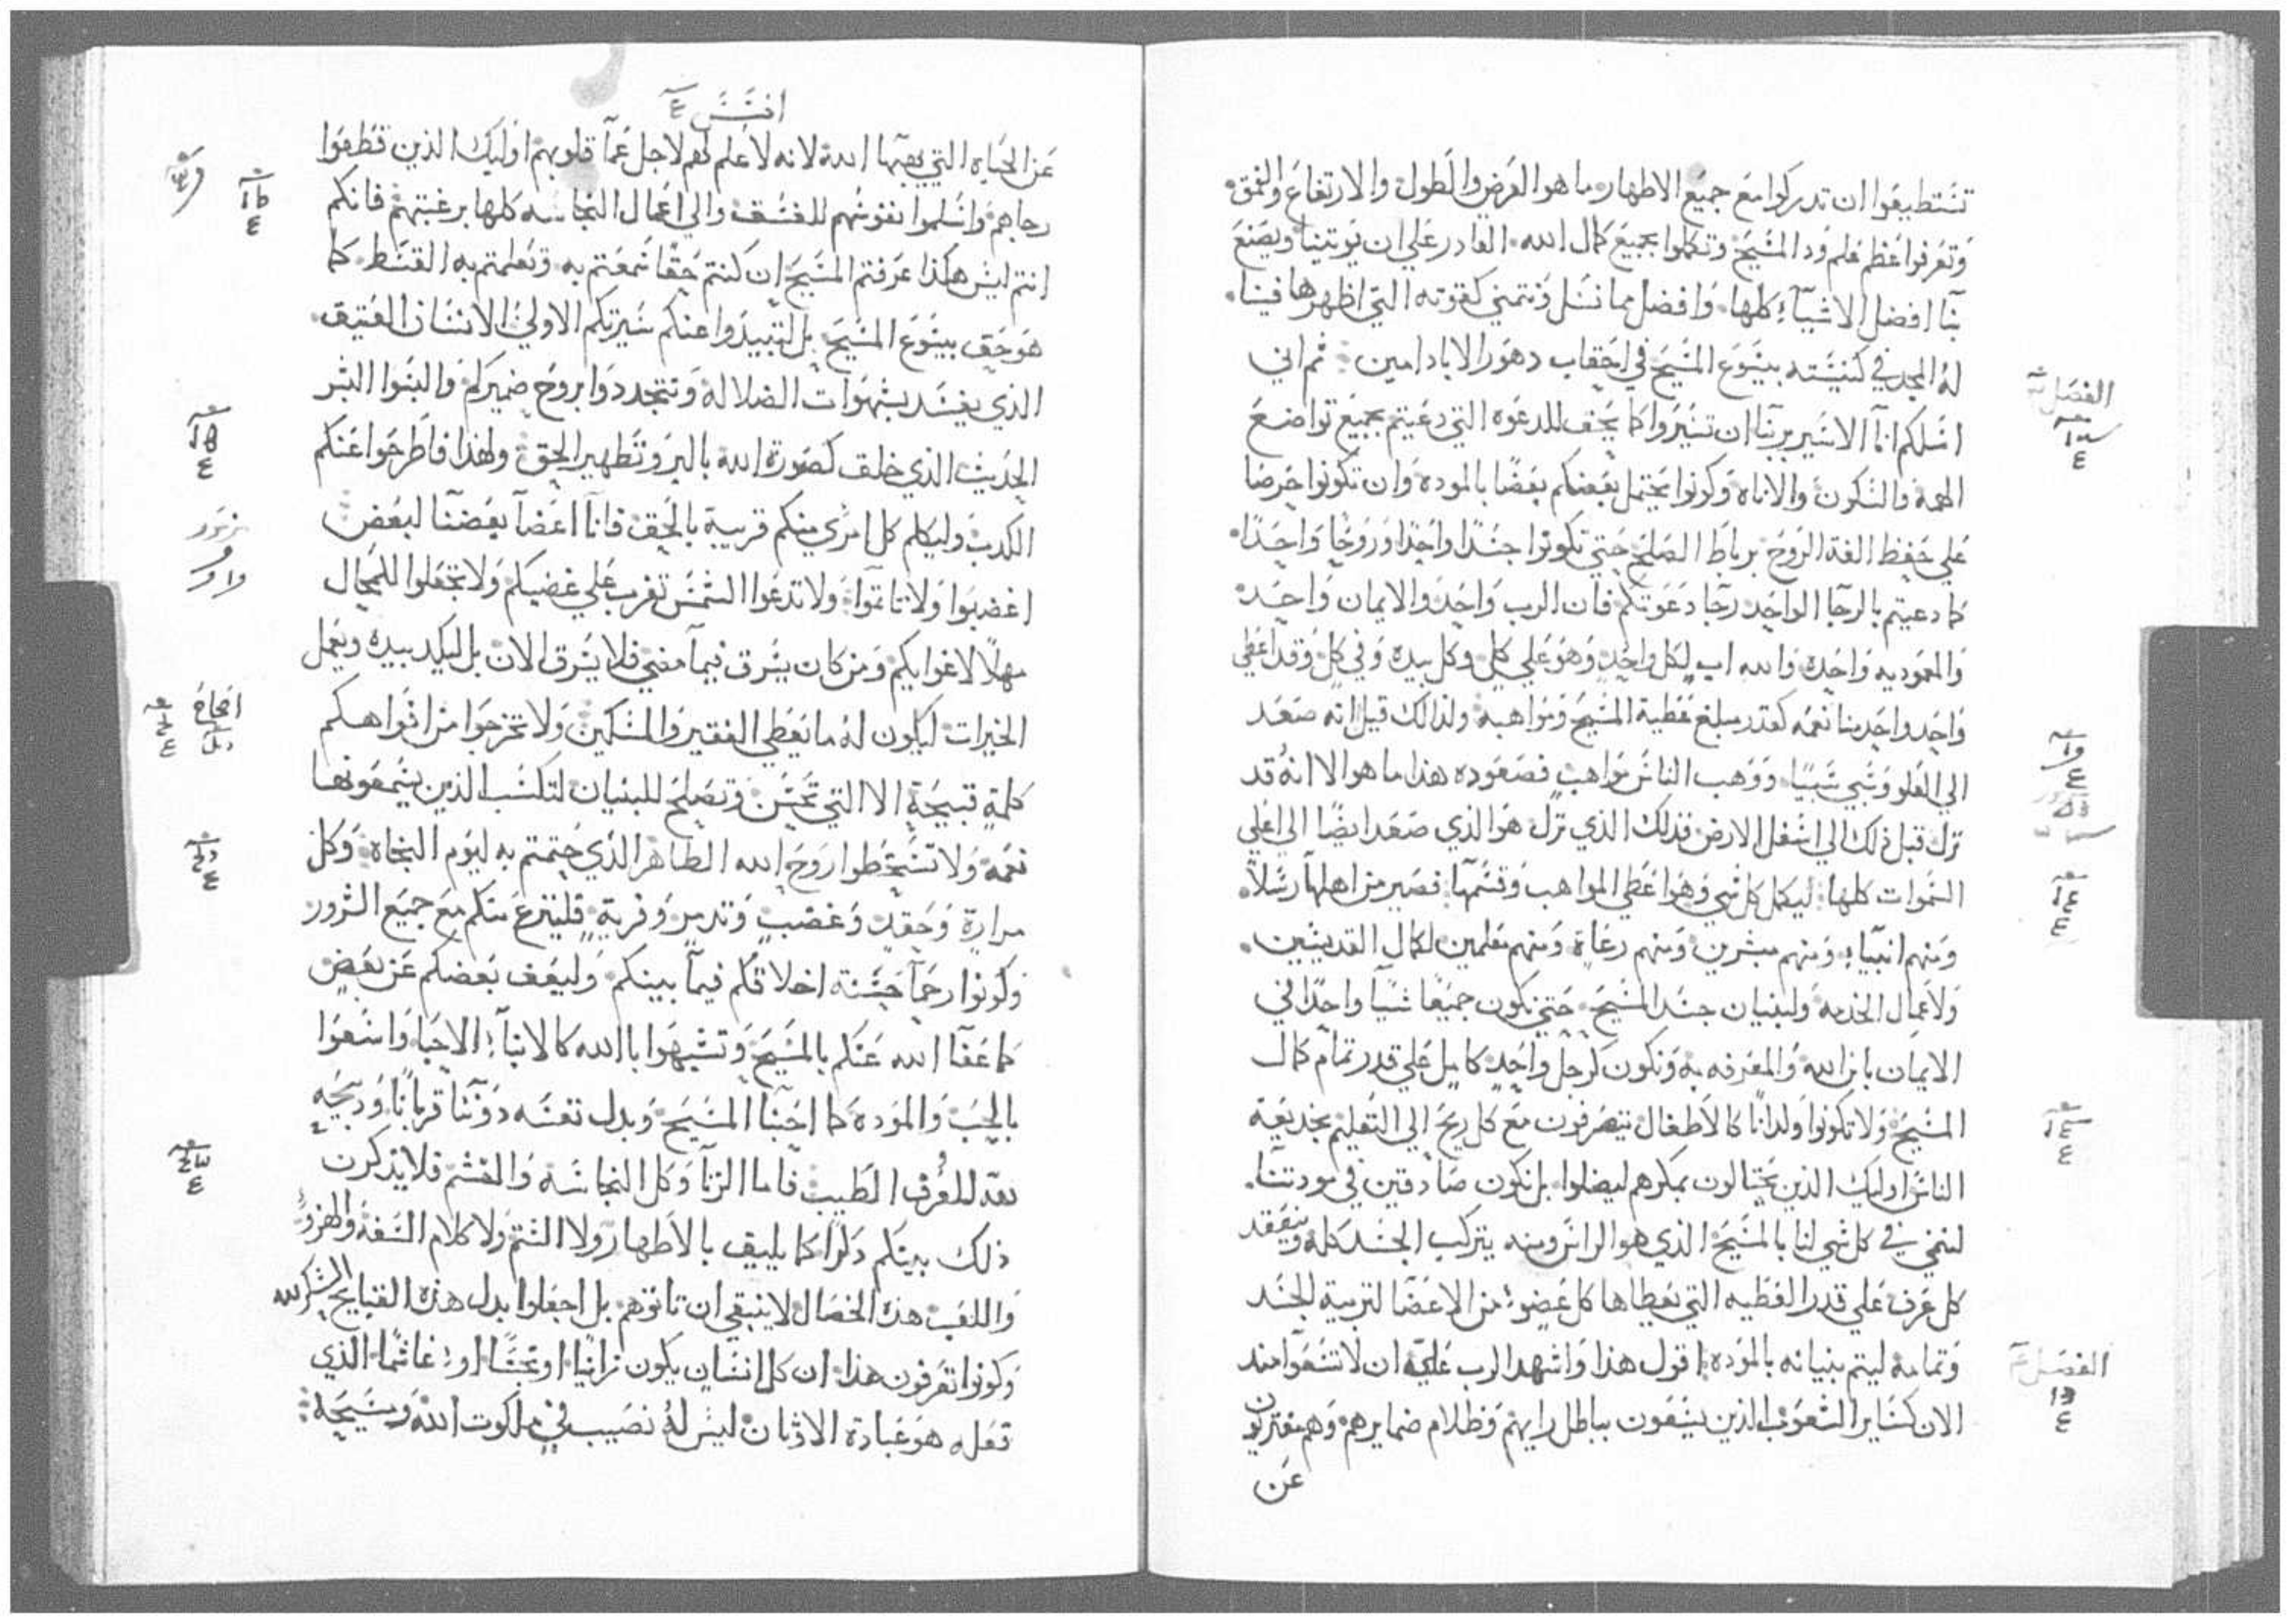 تستطيعوا ان تدركوا مع جميع الاطهار ما هو العرض والطول والارتفاع والعمق
وتعرفوا عظم علم ود المسيح وتكملوا بجميع كمال الله القادر علي ان يوتينا ويصنع
بنا افضل الاشيآء كلها وافضل مما نسل ونتمني كقوته التي اظهرها فينا
له المجد في كنيسته بيسوع المسيح في احقاب دهور الاباد امين ثم اني
الفصل
اسلكم انا الاسير بربنا ان تسيروا كما يحق للدعوه التي دعيتم بجميع تواضع
الهمة والسكون والاناه وكونوا يحتمل بعضكم بعضا بالموده وان تكونوا حرصا
علي حفظ الفة الروح برباط الصلح حتي تكونوا جسدا واحدا وروحا واحدا
كما دعيتم بالرجا الواحد رجا دعوتكم فان الرب واحد والايمان واحد
والمعموديه واحده والله اب لكل واحد وهو علي كل وكل بيده وفي كل وقد اعطي
واحد واحد منا نعمه كقدر مبلغ عطية المسيح ومواهبه ولذلك قيل انه صعد
الي العلو وسبي سبيا ووهب الناس مواهب فصعوده هذا ما هو الا انه قد
نزل قبل ذلك الي اسفل الارض فذلك الذي نزل هو الذي صعد ايضا الي اعلي
السموات كلها ليكمل كل شي وهو اعطي المواهب وقسمها فصير من اهلها رسلا
ومنهم انبيآء ومنهم مبشرين ومنهم رعاة ومنهم معلمين لكمال القديسين
ولاعمال الخدمه ولبنيان جسد المسيح حتي نكون جميعا شيا واحدا في
الايمان بابن الله والمعرفه به ونكون كرجل واحد كامل علي قدر تمام كمال
المسيح ولا تكونوا ولدانا كالاطفال تتصرفون مع كل ريح الي التعليم بخديعة
الناس اوليك الذين يحتالون بمكرهم ليضلوا بل نكون صادقين في مودتنا
لننمي في كل شي لنا بالمسيح الذي هو الراس ومنه يتركب الجسد كله وينعقد
كل عرف علي قدر العطيه التي يعطاها كل عضو من الاعضا لتربية الجسد
وتمامه ليتم بنيانه بالموده اقول هذا واشهد الرب عليه ان لا تسعوا منذ
الفصل
الان كساير الشعوب الذين يسعون بباطل رايهم وظلام ضمايرهم وهم مغتربون
عن
افسس ٤
عن الحياه التي يهبها الله لانه لا علم لهم لاجل عما قلوبهم اوليك الذين قطعوا
رجاهم واسلموا نفوسهم للفسق والي اعمال النجاسه كلها برغبتهم فانكم
انتم ليس هكذا عرفتم المسيح ان كنتم حقا سمعتم به وتعلمتم به القسط كما
هو حق بيسوع المسيح بل لتبيدوا عنكم سيرتكم الاولي الانسان العتيق
الذي يفسد بشهوات الضلالة وتتجددوا بروح ضميركم والبسوا البشر
الحديث الذي خلق كصورة الله بالبر وتطهير الحق ولهذا فاطرحوا عنكم
الكدب وليكلم كل امري منكم قريبة بالحق فانا اعضآ بعضنا لبعض
اغضبوا ولا تاتموا ولا تدعوا الشمس تغرب علي غضبكم ولا تجعلوا للمحال
مهلا لاغوايكم ومن كان يسرق فيما مضي فلا يسرق الان بل ليكد بيده ويعمل
الخيرات ليكون له ما يعطي الفقير والمسكين ولا تخرجوا من افواهكم
كلمة قبيحة الا التي تحسن وتصلح للبنيان لتكسب الذين يسمعونها
نعمة ولا تسخطوا روح الله الطاهر الذي ختمتم به ليوم النجاة وكل
مرارة وحقد وغضب وتدمر وفرية فلينزع منكم مع جميع الشرور
وكونوا رحمآ حسنة اخلاقكم فيما بينكم وليعف بعضكم عن بعض
كما عفا الله عنكم بالمسيح وتشبهوا بالله كالابنآء الاحبا واسعوا
بالحب والموده كما احبنا المسيح وبدل نفسه دوننا قربانا ودبيحه
لله للعرف الطيب فاما الزنا وكل النجاسة والغشم فلا يذكرن
ذلك بينكم ذكرا كما يليق بالاطهار ولا الشتم ولا كلام السفه والهزو
واللعب هذه الخصال لا ينبغي ان تاتوهم بل اجعلوا بدل هذه القبايح الشكر لله
وكونوا تعرفون هذا ان كل انسان يكون زانيا او نجسا او غاشما الذي
فعله هو عبادة الاوثان ليس له نصيب في ملكوت الله ومسيحه